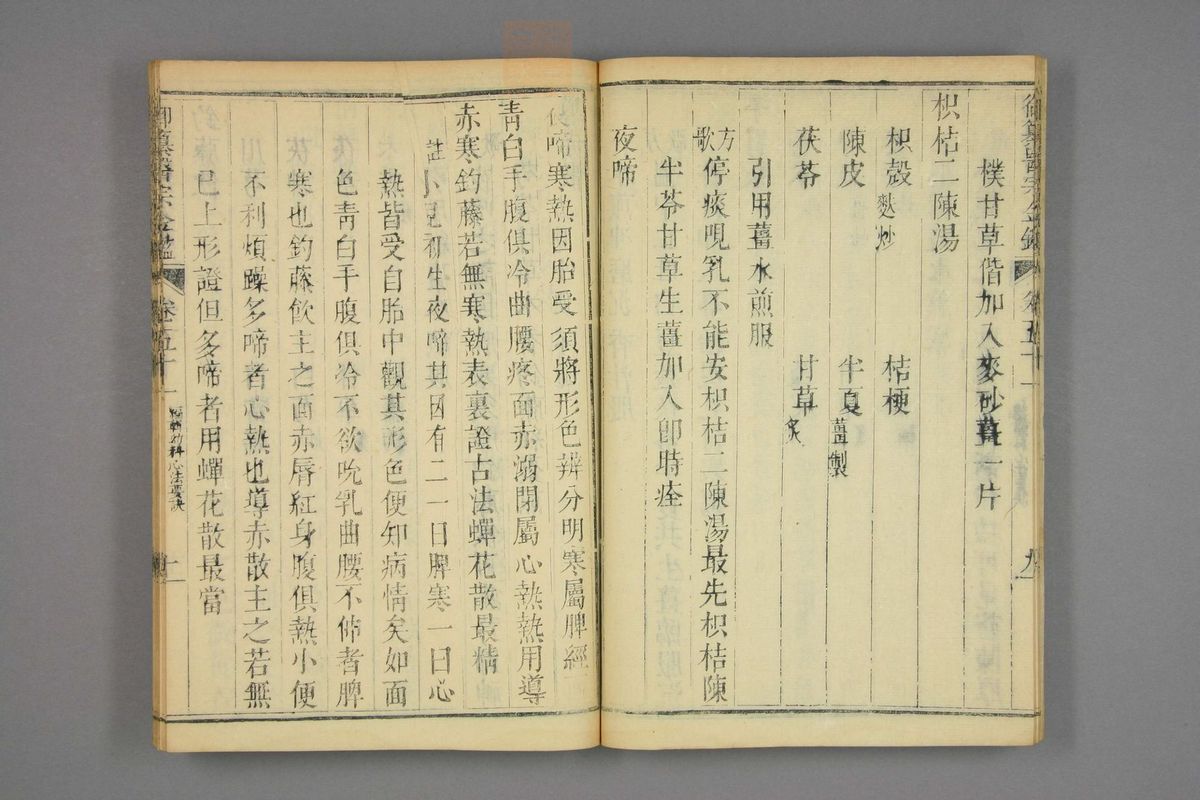 御纂醫宗金鑑 卷五十 九
樸甘草偕加入麥砂薑一片
枳桔二陳湯
枳殼麩炒 桔梗
陳皮 半夏薑製
茯苓 甘草炙
引用薑水煎服
方歌 停痰哯乳不能安枳桔二陳湯最先枳桔陳
半苓甘草生薑加入卽時痊
夜啼
夜啼寒熱因胎受須將形色辨分明寒屬脾經
靑白手腹俱冷曲腰疼面赤溺閉屬心熱熱用導
赤寒鈞藤若無寒熱表裏證古法蟬花散最精
註 小兒初生夜啼其因有二一曰脾寒一曰心
熱皆受自胎中觀其形色便知病情矣如面
色靑白手腹俱冷不欲吮乳曲腰不伸者脾
寒也鈞藤飮主之面赤唇紅身腹俱熱小便
不利煩躁多啼者心熱也導赤散主之若無
已上形證但多啼者用蟬花散最當
御纂醫宗金鑑 卷五十 編輯幼科心法要訣 十